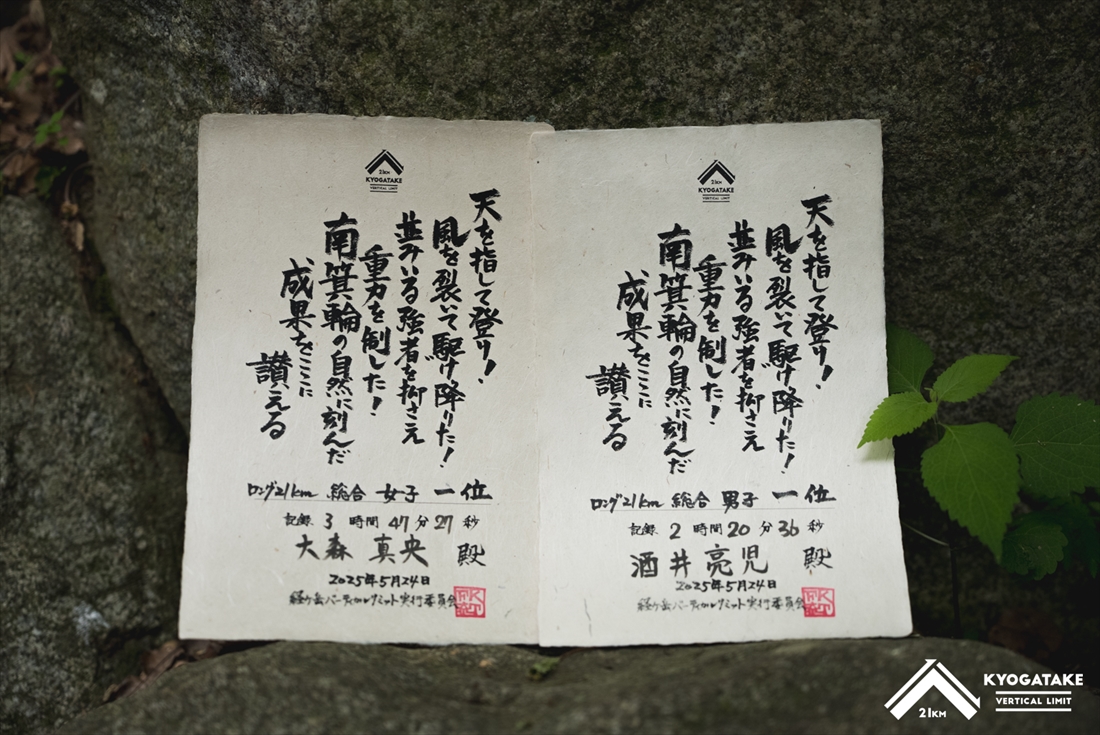 21KM
KYOGATAKE
VERTICAL LIMIT
天を指して登り！
風を裂いて駆け降りた！
並みいる強者を抑さえ
重力を制した！
南箕輪の自然に刻んだ
成果をここに
讃える
ロング21km 総合 女子 一位
記録 3 時間 47 分 27 秒
大森 真央 殿
2025年5月24日
経ヶ岳バーティカルリミット実行委員会
21KM
KYOGATAKE
VERTICAL LIMIT
天を指して登り！
風を裂いて駆け降りた！
並みいる強者を抑さえ
重力を制した！
南箕輪の自然に刻んだ
成果をここに
讃える
ロング21km 総合 男子 一位
記録 2 時間 20 分 36 秒
酒井 亮児 殿
2025年5月24日
経ヶ岳バーティカルリミット実行委員会
21KM
KYOGATAKE
VERTICAL LIMIT